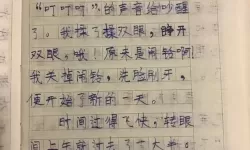 “叮叮叮”的声音给吵醒
了。我揉了揉双眼，睁开
双眼。哦！原来是闹铃啊！
我关掉闹铃，洗脸刷牙，
便开始了新的一天。
时间过得飞快，转眼
间上午就过去了一大半。